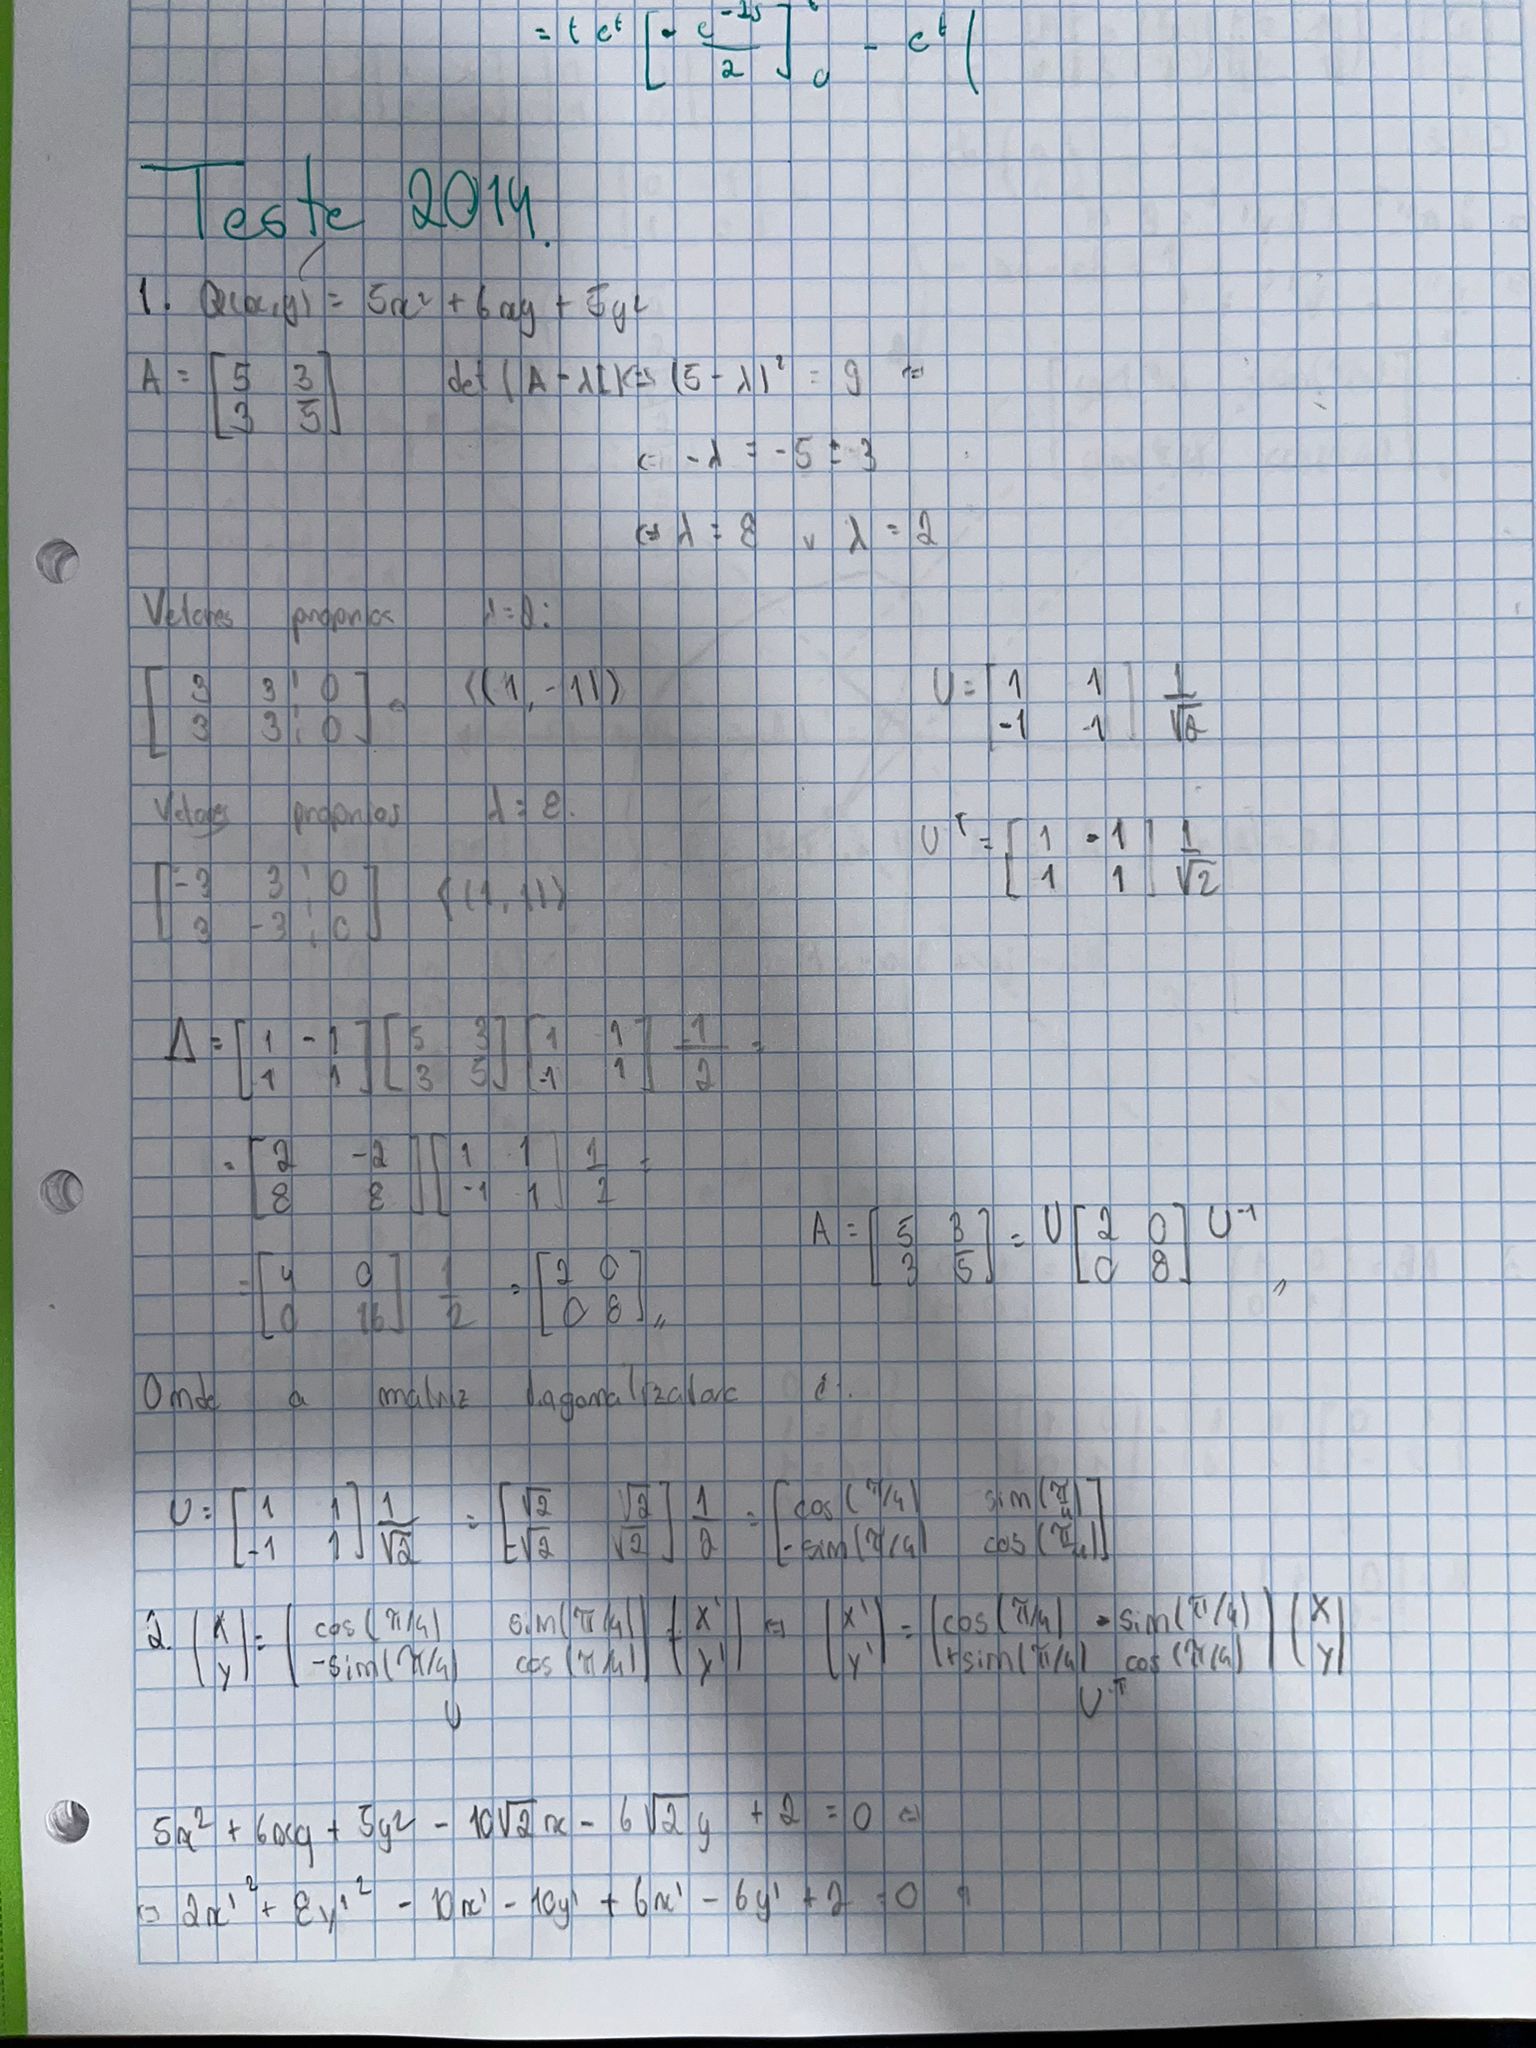 = t e^t [- e^{-2s}/2]_0^t - e^t (
Teste 2014.
1. Q(x,y) = 5x² + 6xy + 5y²
A = [5 3; 3 5] det(A - λI) ⇔ (5 - λ)² = 9 ⇔
⇔ -λ = -5 ± 3
⇔ λ = 8 v λ = 2
Vetores proprios λ=2:
[3 3 ¦ 0; 3 3 ¦ 0] = ⟨(1, -1)⟩ U = [1 1; -1 1] 1/√2
Vetores proprios λ = 8.
[-3 3 ¦ 0; 3 -3 ¦ 0] ⟨(1, 1)⟩ U^T = [1 -1; 1 1] 1/√2
Λ = [1 -1; 1 1] [5 3; 3 5] [1 1; -1 1] 1/2 =
= [2 -2; 8 8] [1 1; -1 1] 1/2 =
= [4 0; 0 16] 1/2 = [2 0; 0 8] ,, A = [5 3; 3 5] = U [2 0; 0 8] U^{-1} ,,
Onde a matriz diagonalizadora é:
U = [1 1; -1 1] 1/√2 = [√2 √2; -√2 √2] 1/2 = [cos(π/4) sin(π/4); -sin(π/4) cos(π/4)]
2. (x; y) = (cos(π/4) sin(π/4); -sin(π/4) cos(π/4)) (x'; y') ⇔ (x'; y') = (cos(π/4) -sin(π/4); +sin(π/4) cos(π/4)) (x; y)
U U^T
5x² + 6xy + 5y² - 10√2x - 6√2y + 2 = 0 ⇔
⇔ 2x'² + 8y'² - 10x' - 10y' + 6x' - 6y' + 2 = 0